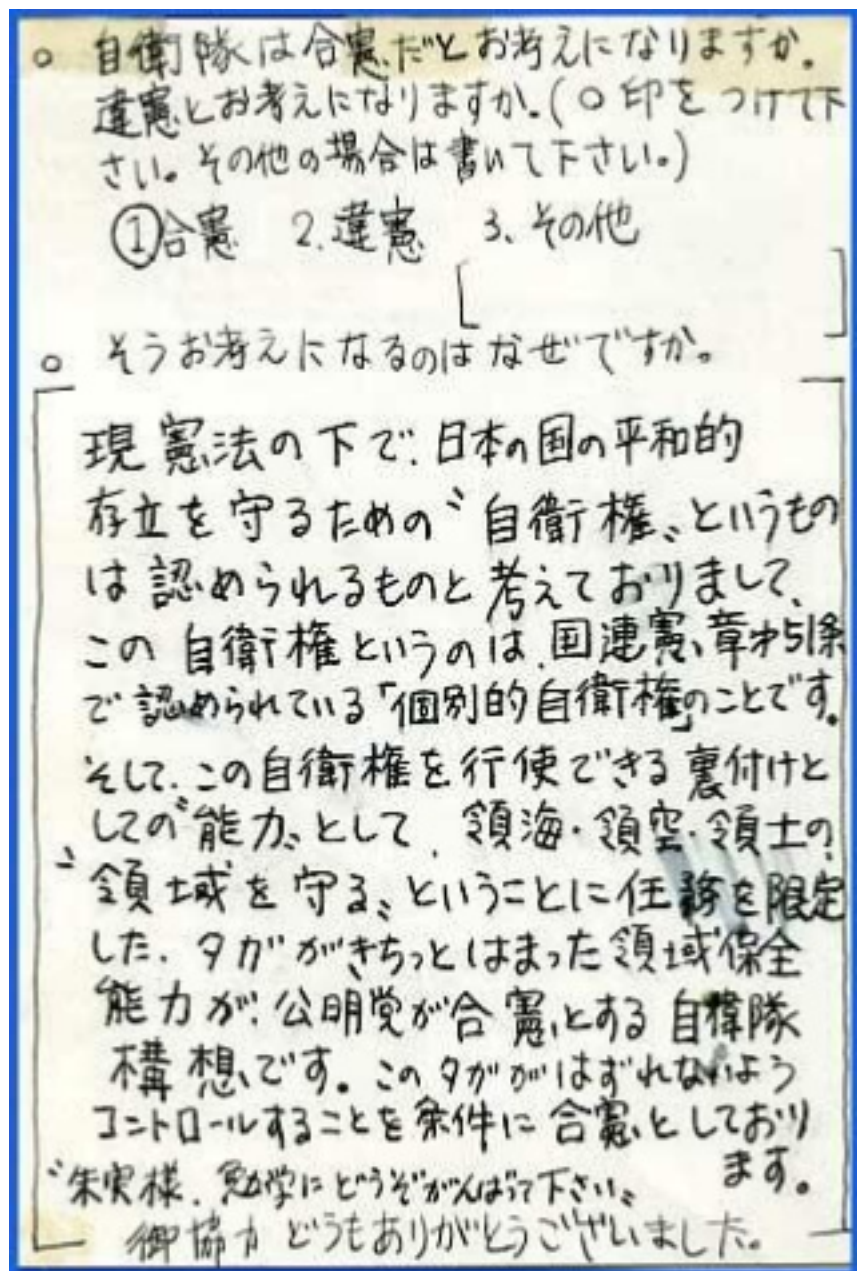 ○ 自衛隊は合憲だとお考えになりますか。
違憲とお考えになりますか。(○印をつけて下
さい。その他の場合は書いて下さい。)
①合憲 2.違憲 3、その他
[ ]
○ そうお考えになるのはなぜですか。
現憲法の下で、日本の国の平和的
存立を守るための〝自衛権〟というもの
は認められるものと考えておりまして、
この自衛権というのは、国連憲章才51条
で認められている「個別的自衛権」のことです。
そして、この自衛権を行使できる裏付けと
しての〝能力〟として、領海・領空・領土の
〝領域を守る〟ということに任務を限定
した、タガがきちっとはまった領域保全
能力が、公明党が合憲とする自衛隊
構想です。このタガがはずれないよう
コントロールすることを条件に合憲としており
ます。
〝朱実様、勉学にどうぞがんばって下さい〟
御協力どうもありがとうございました。